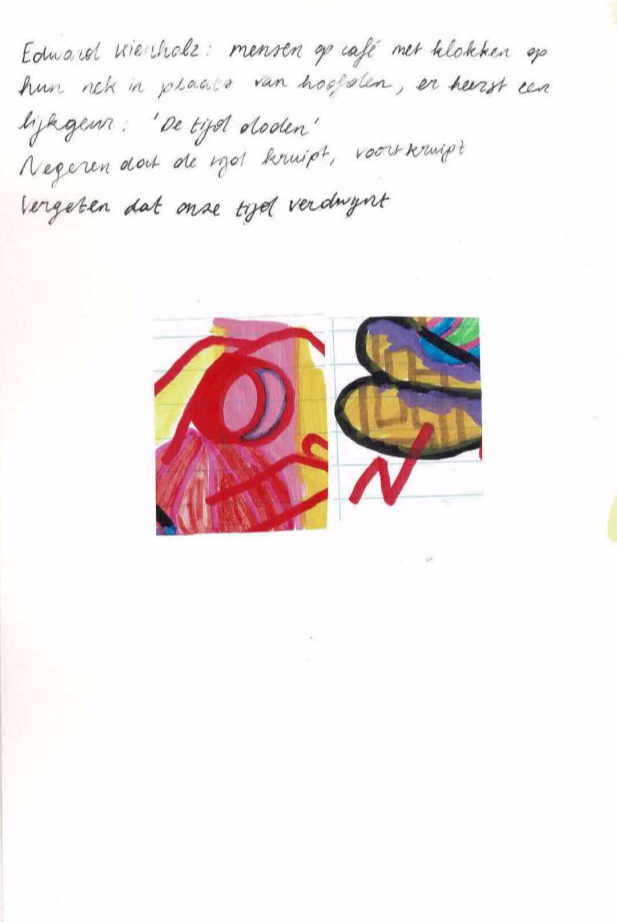 Edward Kienholz: mensen op café met klokken op
hun nek in plaats van hoofden, er heerst een
lijkgeur: 'De tijd doden'
Negeren dat de tijd kruipt, voortkruipt
Vergeten dat onze tijd verdwijnt
N